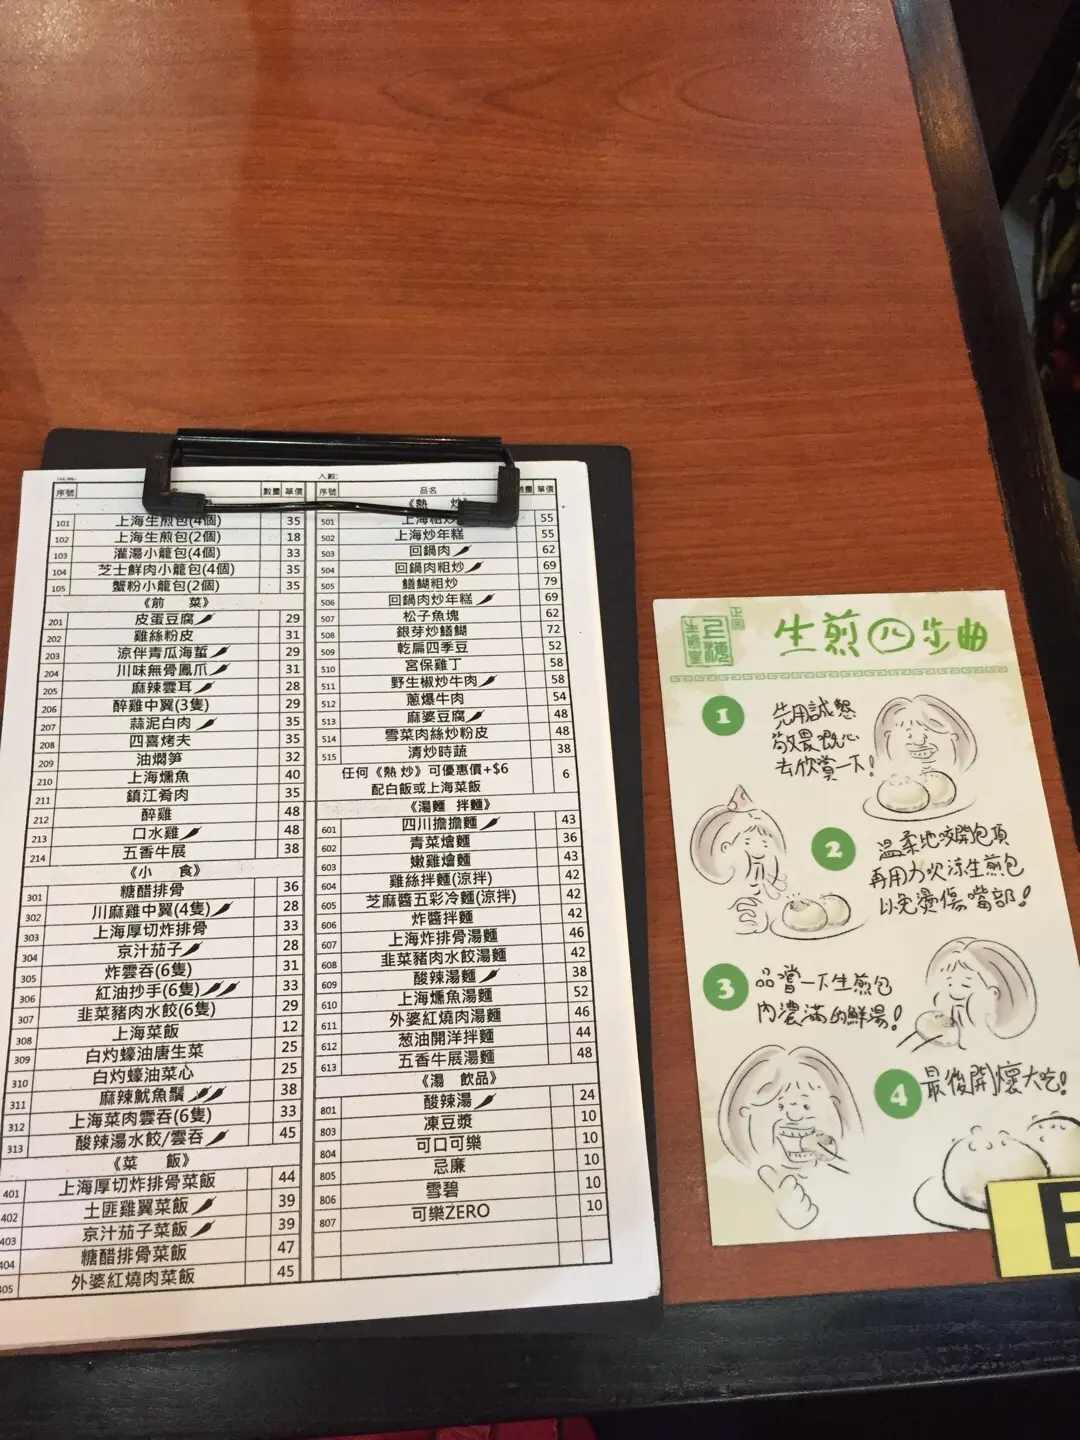 序號 數量 單價
101 上海生煎包(4個) 35
102 上海生煎包(2個) 18
103 灌湯小籠包(4個) 33
104 芝士鮮肉小籠包(4個) 35
105 蟹粉小籠包(2個) 35
《前 菜》
201 皮蛋豆腐 29
202 雞絲粉皮 31
203 涼伴青瓜海蜇 29
204 川味無骨鳳爪 31
205 麻辣雲耳 28
206 醉雞中翼(3隻) 29
207 蒜泥白肉 35
208 四喜烤夫 35
209 油燜筍 32
210 上海燻魚 40
211 鎮江肴肉 35
212 醉雞 48
213 口水雞 48
214 五香牛展 38
《小 食》
301 糖醋排骨 36
302 川麻雞中翼(4隻) 28
303 上海厚切炸排骨 33
304 京汁茄子 28
305 炸雲吞(6隻) 31
306 紅油抄手(6隻) 33
307 韭菜豬肉水餃(6隻) 29
308 上海菜飯 12
309 白灼蠔油唐生菜 25
310 白灼蠔油菜心 25
311 麻辣魷魚鬚 38
312 上海菜肉雲吞(6隻) 33
313 酸辣湯水餃/雲吞 45
《菜 飯》
401 上海厚切炸排骨菜飯 44
402 土匪雞翼菜飯 39
403 京汁茄子菜飯 39
404 糖醋排骨菜飯 47
405 外婆紅燒肉菜飯 45
人數
序號 品名 單價
《熱 炒》
501 上海粗炒 55
502 上海炒年糕 55
503 回鍋肉 62
504 回鍋肉粗炒 69
505 鱔鰗粗炒 79
506 回鍋肉炒年糕 69
507 松子魚塊 62
508 銀芽炒鱔鰗 72
509 乾扁四季豆 52
510 宮保雞丁 58
511 野生椒炒牛肉 58
512 蔥爆牛肉 54
513 麻婆豆腐 48
514 雪菜肉絲炒粉皮 48
515 清炒時蔬 38
任何《熱 炒》可優惠價+$6
配白飯或上海菜飯 6
《湯麵 拌麵》
601 四川擔擔麵 43
602 青菜燴麵 36
603 嫩雞燴麵 43
604 雞絲拌麵(涼拌) 42
605 芝麻醬五彩冷麵(涼拌) 42
606 炸醬拌麵 42
607 上海炸排骨湯麵 46
608 韭菜豬肉水餃湯麵 42
609 酸辣湯麵 38
610 上海燻魚湯麵 52
611 外婆紅燒肉湯麵 46
612 葱油開洋拌麵 44
613 五香牛展湯麵 48
《湯 飲品》
801 酸辣湯 24
803 凍豆漿 10
804 可口可樂 10
805 忌廉 10
806 雪碧 10
807 可樂ZERO 10
正宗
上海
生煎皇
生煎四步曲
1
先用誠懇
敬畏嘅心
去欣賞一下!
2
溫柔地咬開包頂
再用力吹涼生煎包
以免燙傷嘴部!
3
品嘗一下生煎包
內濃滿的鮮湯!
4
最後開懷大吃!